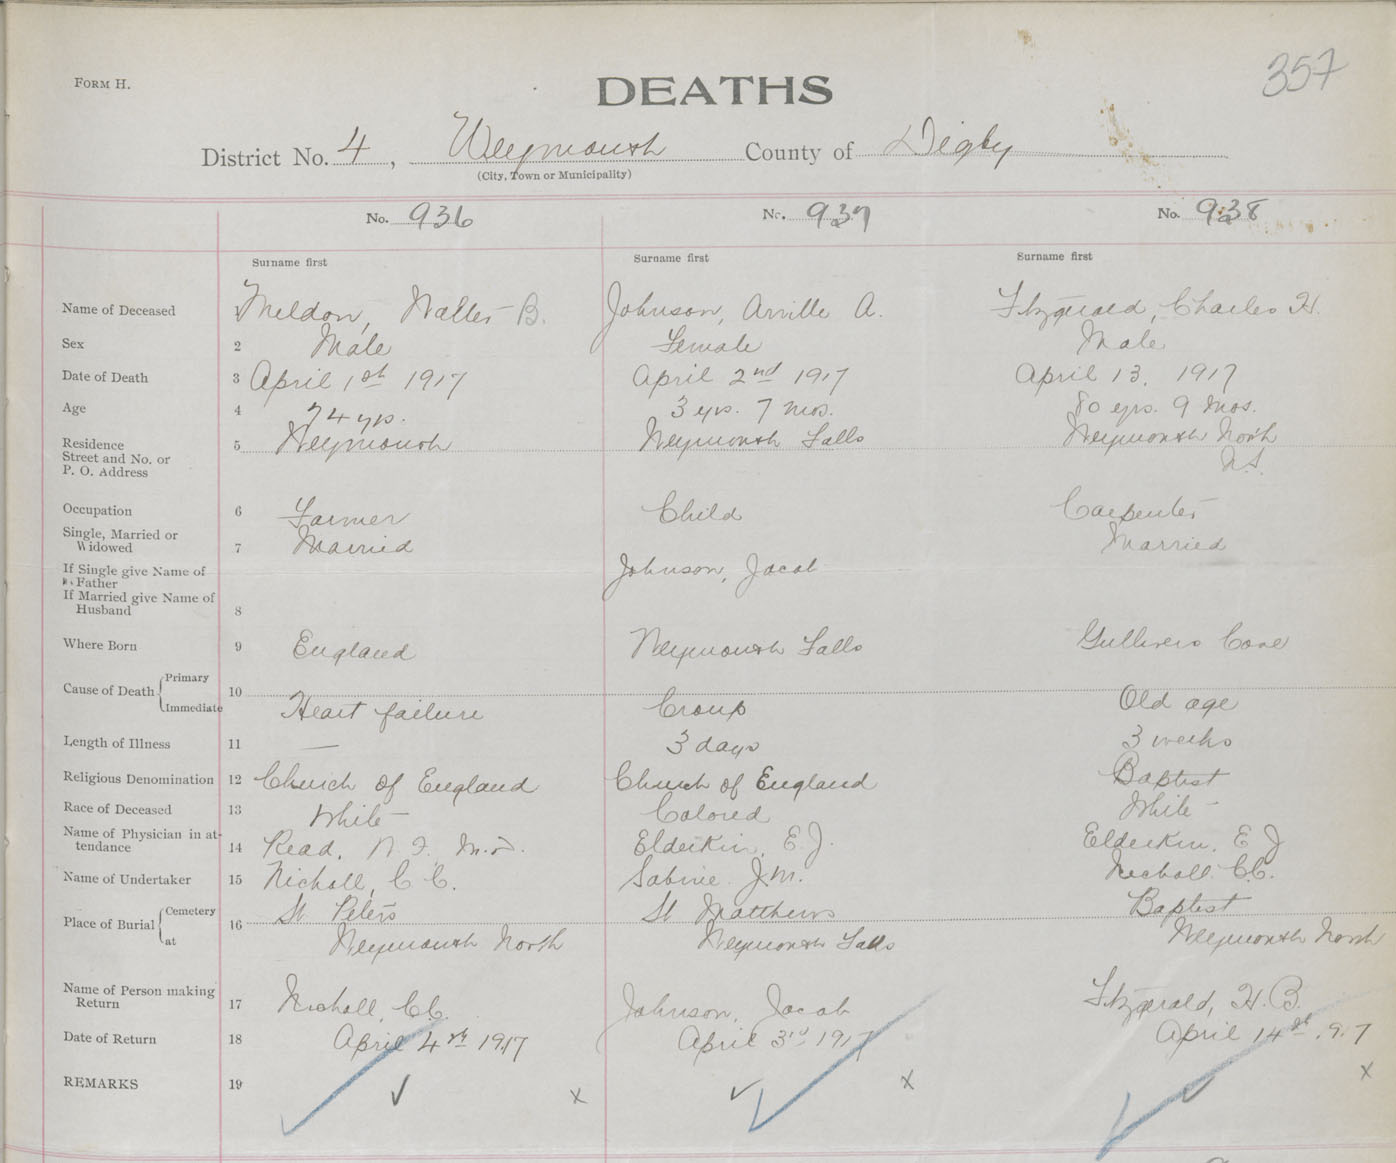 357
FORM H.
DEATHS
District No. 4, Weymouth County of Digby
(City, Town or Municipality)
No. 936 No. 937 No. 938
Surname first Surname first Surname first
Name of Deceased 1 Meldon, Walter B. Johnson, Arville A. Fitzgerald, Charles H.
Sex 2 Male Female Male
Date of Death 3 April 1st 1917 April 2nd 1917 April 13. 1917
Age 4 74 yrs. 3 yrs. 7 mos. 80 yrs. 9 mos.
Residence 5 Weymouth Weymouth Falls Weymouth North
Street and No. or
P. O. Address N.S.
Occupation 6 Farmer Child Carpenter
Single, Married or
Widowed 7 Married Married
If Single give Name of Johnson, Jacob
Father
If Married give Name of
Husband 8
Where Born 9 England Weymouth Falls Gullivers Cove
Primary
Cause of Death 10
Immediate Heart failure Croup Old age
Length of Illness 11 — 3 days 3 weeks
Religious Denomination 12 Church of England Church of England Baptist
Race of Deceased 13 White Colored White
Name of Physician in at-
tendance 14 Read, M.D. Elderkin, E. J. Elderkin, E J
Name of Undertaker 15 Nichall, C C. Sabine J.M. Nichall C.C.
Cemetery St Peters St Matthews Baptist
Place of Burial 16
at Weymouth North Weymouth Falls Weymouth North
Name of Person making
Return 17 Nichall, C.C. Johnson, Jacob Fitzgerald, H. B.
Date of Return 18 April 4th 1917 April 3rd 1917 April 14th 1917
REMARKS 19 ✓ x ✓ x ✓ x